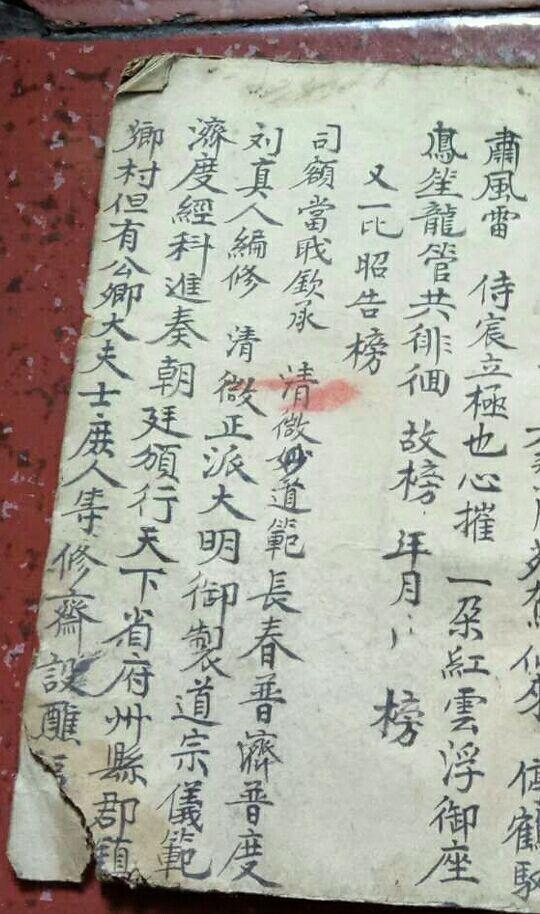 肅風雷 侍宸立極也心摧 一朵紅雲浮御座
鳳笙龍管共徘徊 故榜 年月 榜
又一比昭告榜
司額當戝欽承 清微妙道範長春普濟普度
刘真人編修 清微正派大明御製道宗儀範
濟度經科進奏朝廷頒行天下省府州縣郡鎮
鄉村但有公卿大夫士庶人等修齋設醮